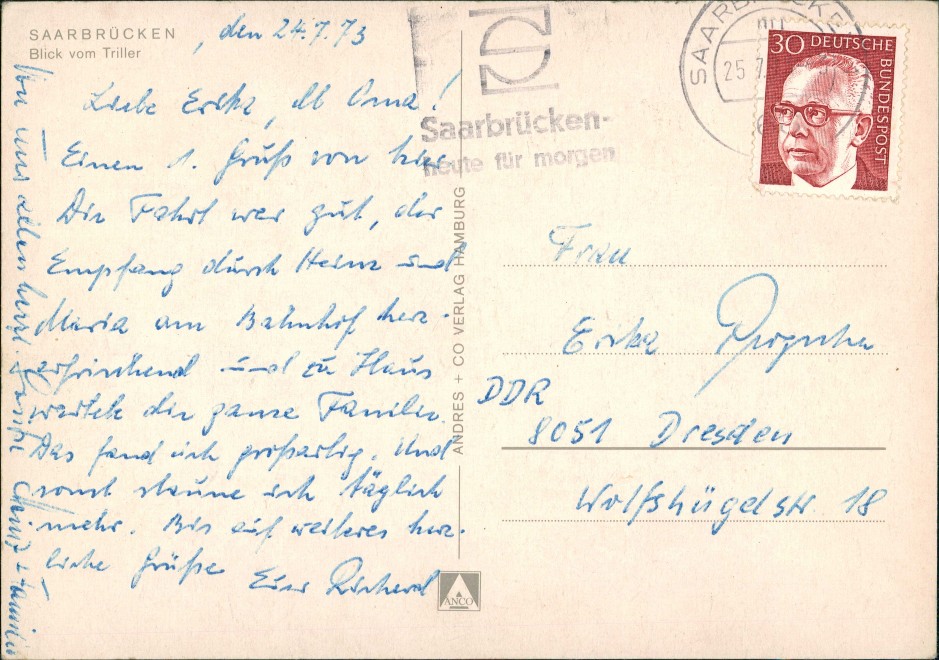 SAARBRÜCKEN
Blick vom Triller
, den 24.7.73
Liebe Erika, lb Oma!
Einen 1. Gruß von hier
Die Fahrt war gut, der
Empfang durch Heinz und
Maria am Bahnhof herz-
erfrischend und zu Haus
wartete die ganze Familie.
Das fand ich großartig. Und
sonst staune ich täglich
mehr. Bis auf weiteres herz-
liche Grüße
Euer Richard
Von uns allen herzl. Grüße Heinz + Familie
ANDRES + CO VERLAG HAMBURG
ANCO
Saarbrücken-
heute für morgen
SAARBRÜCKEN
25.7.
30 DEUTSCHE
BUNDESPOST
Frau
Erika
DDR
8051 Dresden
Wolfshügelstr. 18